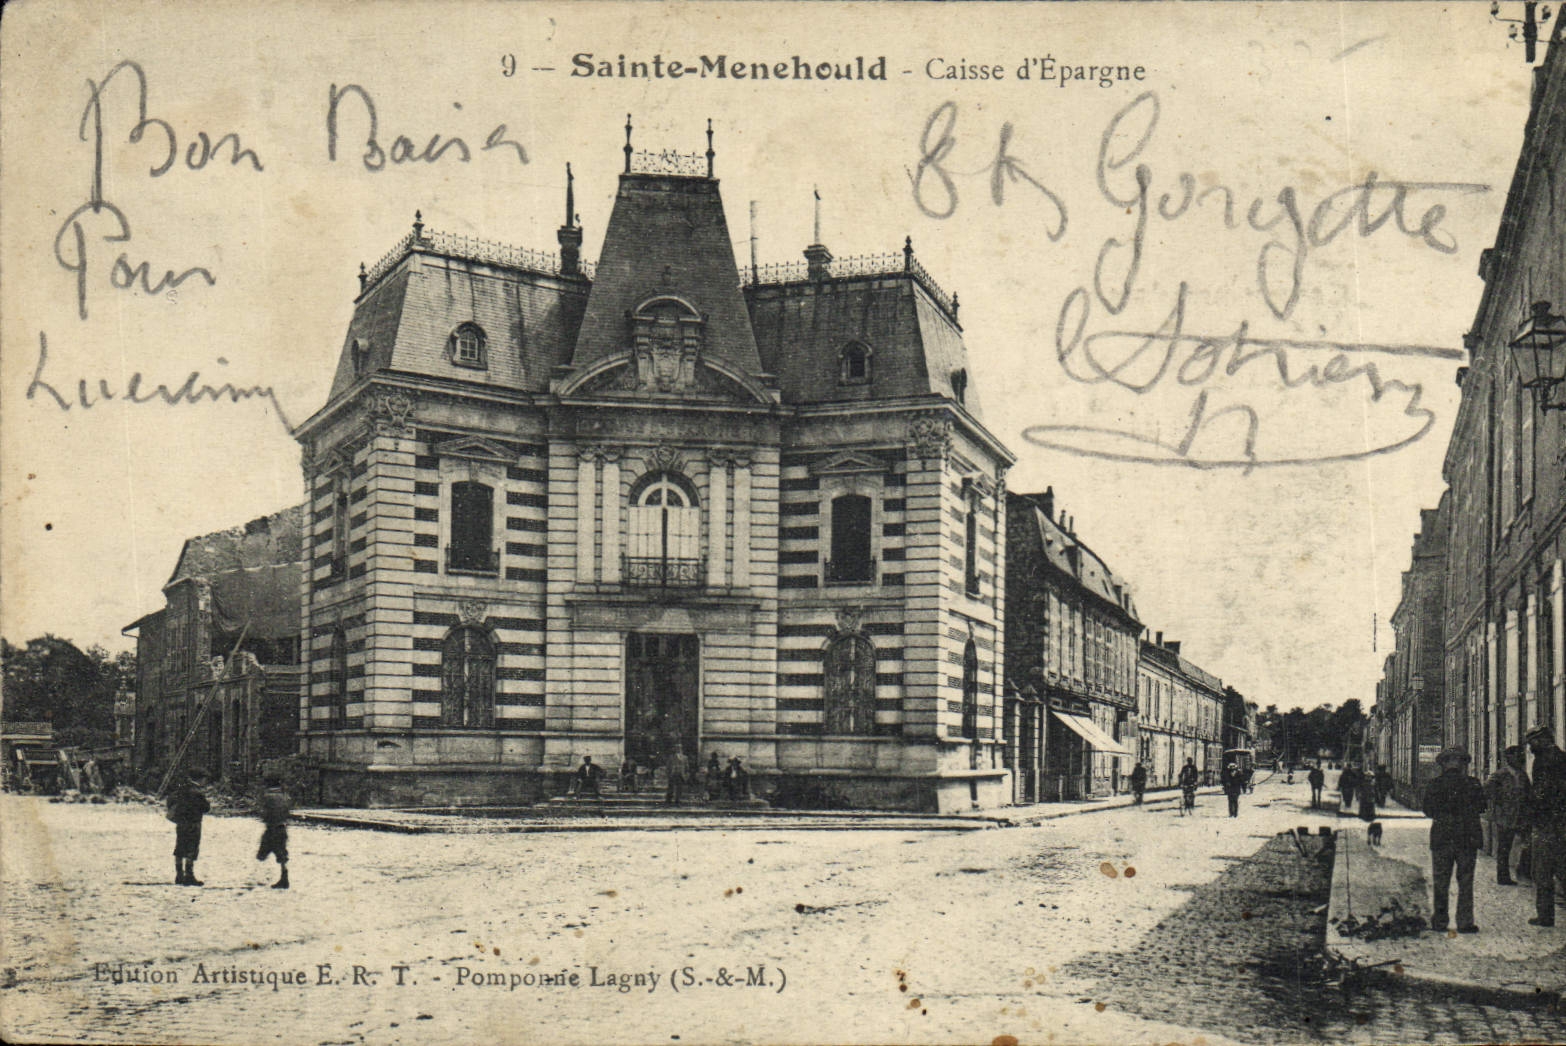 9 – Sainte-Menehould - Caisse d'Épargne
Bon Baiser
Pour
Et Gorgette
Edition Artistique E. R. T. - Pomponne Lagny (S.-&-M.)